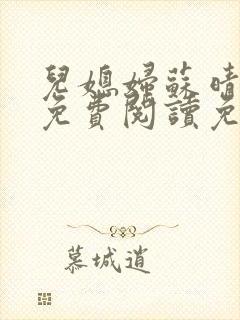 兒媳婦蘇晴
免費閱讀免
慕城逍